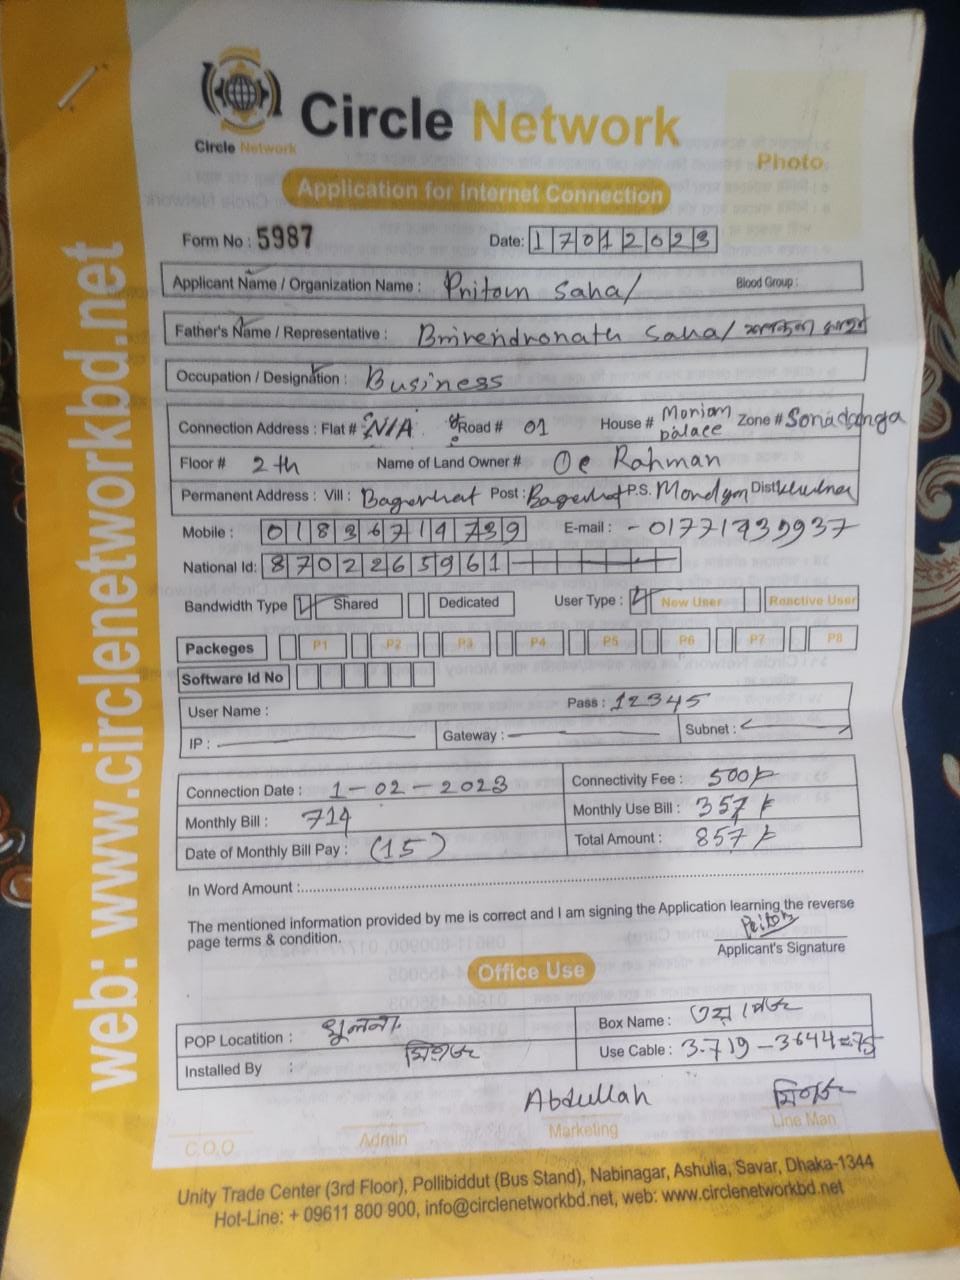 web: www.circlenetworkbd.net
Circle Network
Circle Network
Photo
Application for Internet Connection
Form No : 5987 Date: 17012023
Applicant Name / Organization Name : Pritom Saha/ Blood Group :
Father's Name / Representative : Brirendronath Saha/
Occupation / Designation : Business
Connection Address : Flat # N/A Road # 01 House # Moriom palace Zone # Sonadanga
Floor # 2 th Name of Land Owner # Rahman
Permanent Address : Vill : Bagerhat Post : Bagerhat P.S. Dist
Mobile : 01836714739 E-mail : - 01771935937
National Id: 8702265961
Bandwidth Type Shared Dedicated User Type : New User Reactive User
Packeges P1 P2 P3 P4 P5 P6 P7 P8
Software Id No
User Name : Pass : 12345
IP : Gateway : Subnet :
Connection Date : 1-02-2023 Connectivity Fee : 500/-
Monthly Bill : 714 Monthly Use Bill : 357/-
Date of Monthly Bill Pay : (15) Total Amount : 857/-
In Word Amount :
The mentioned information provided by me is correct and I am signing the Application learning the reverse
page terms & condition.
Pritom
Applicant's Signature
Office Use
POP Locatition : খুলনা Box Name :
Installed By : Use Cable : 3.719 - 3644 = 75
Abdullah
C.O.O Admin Marketing Line Man
Unity Trade Center (3rd Floor), Pollibiddut (Bus Stand), Nabinagar, Ashulia, Savar, Dhaka-1344
Hot-Line: + 09611 800 900, info@circlenetworkbd.net, web: www.circlenetworkbd.net